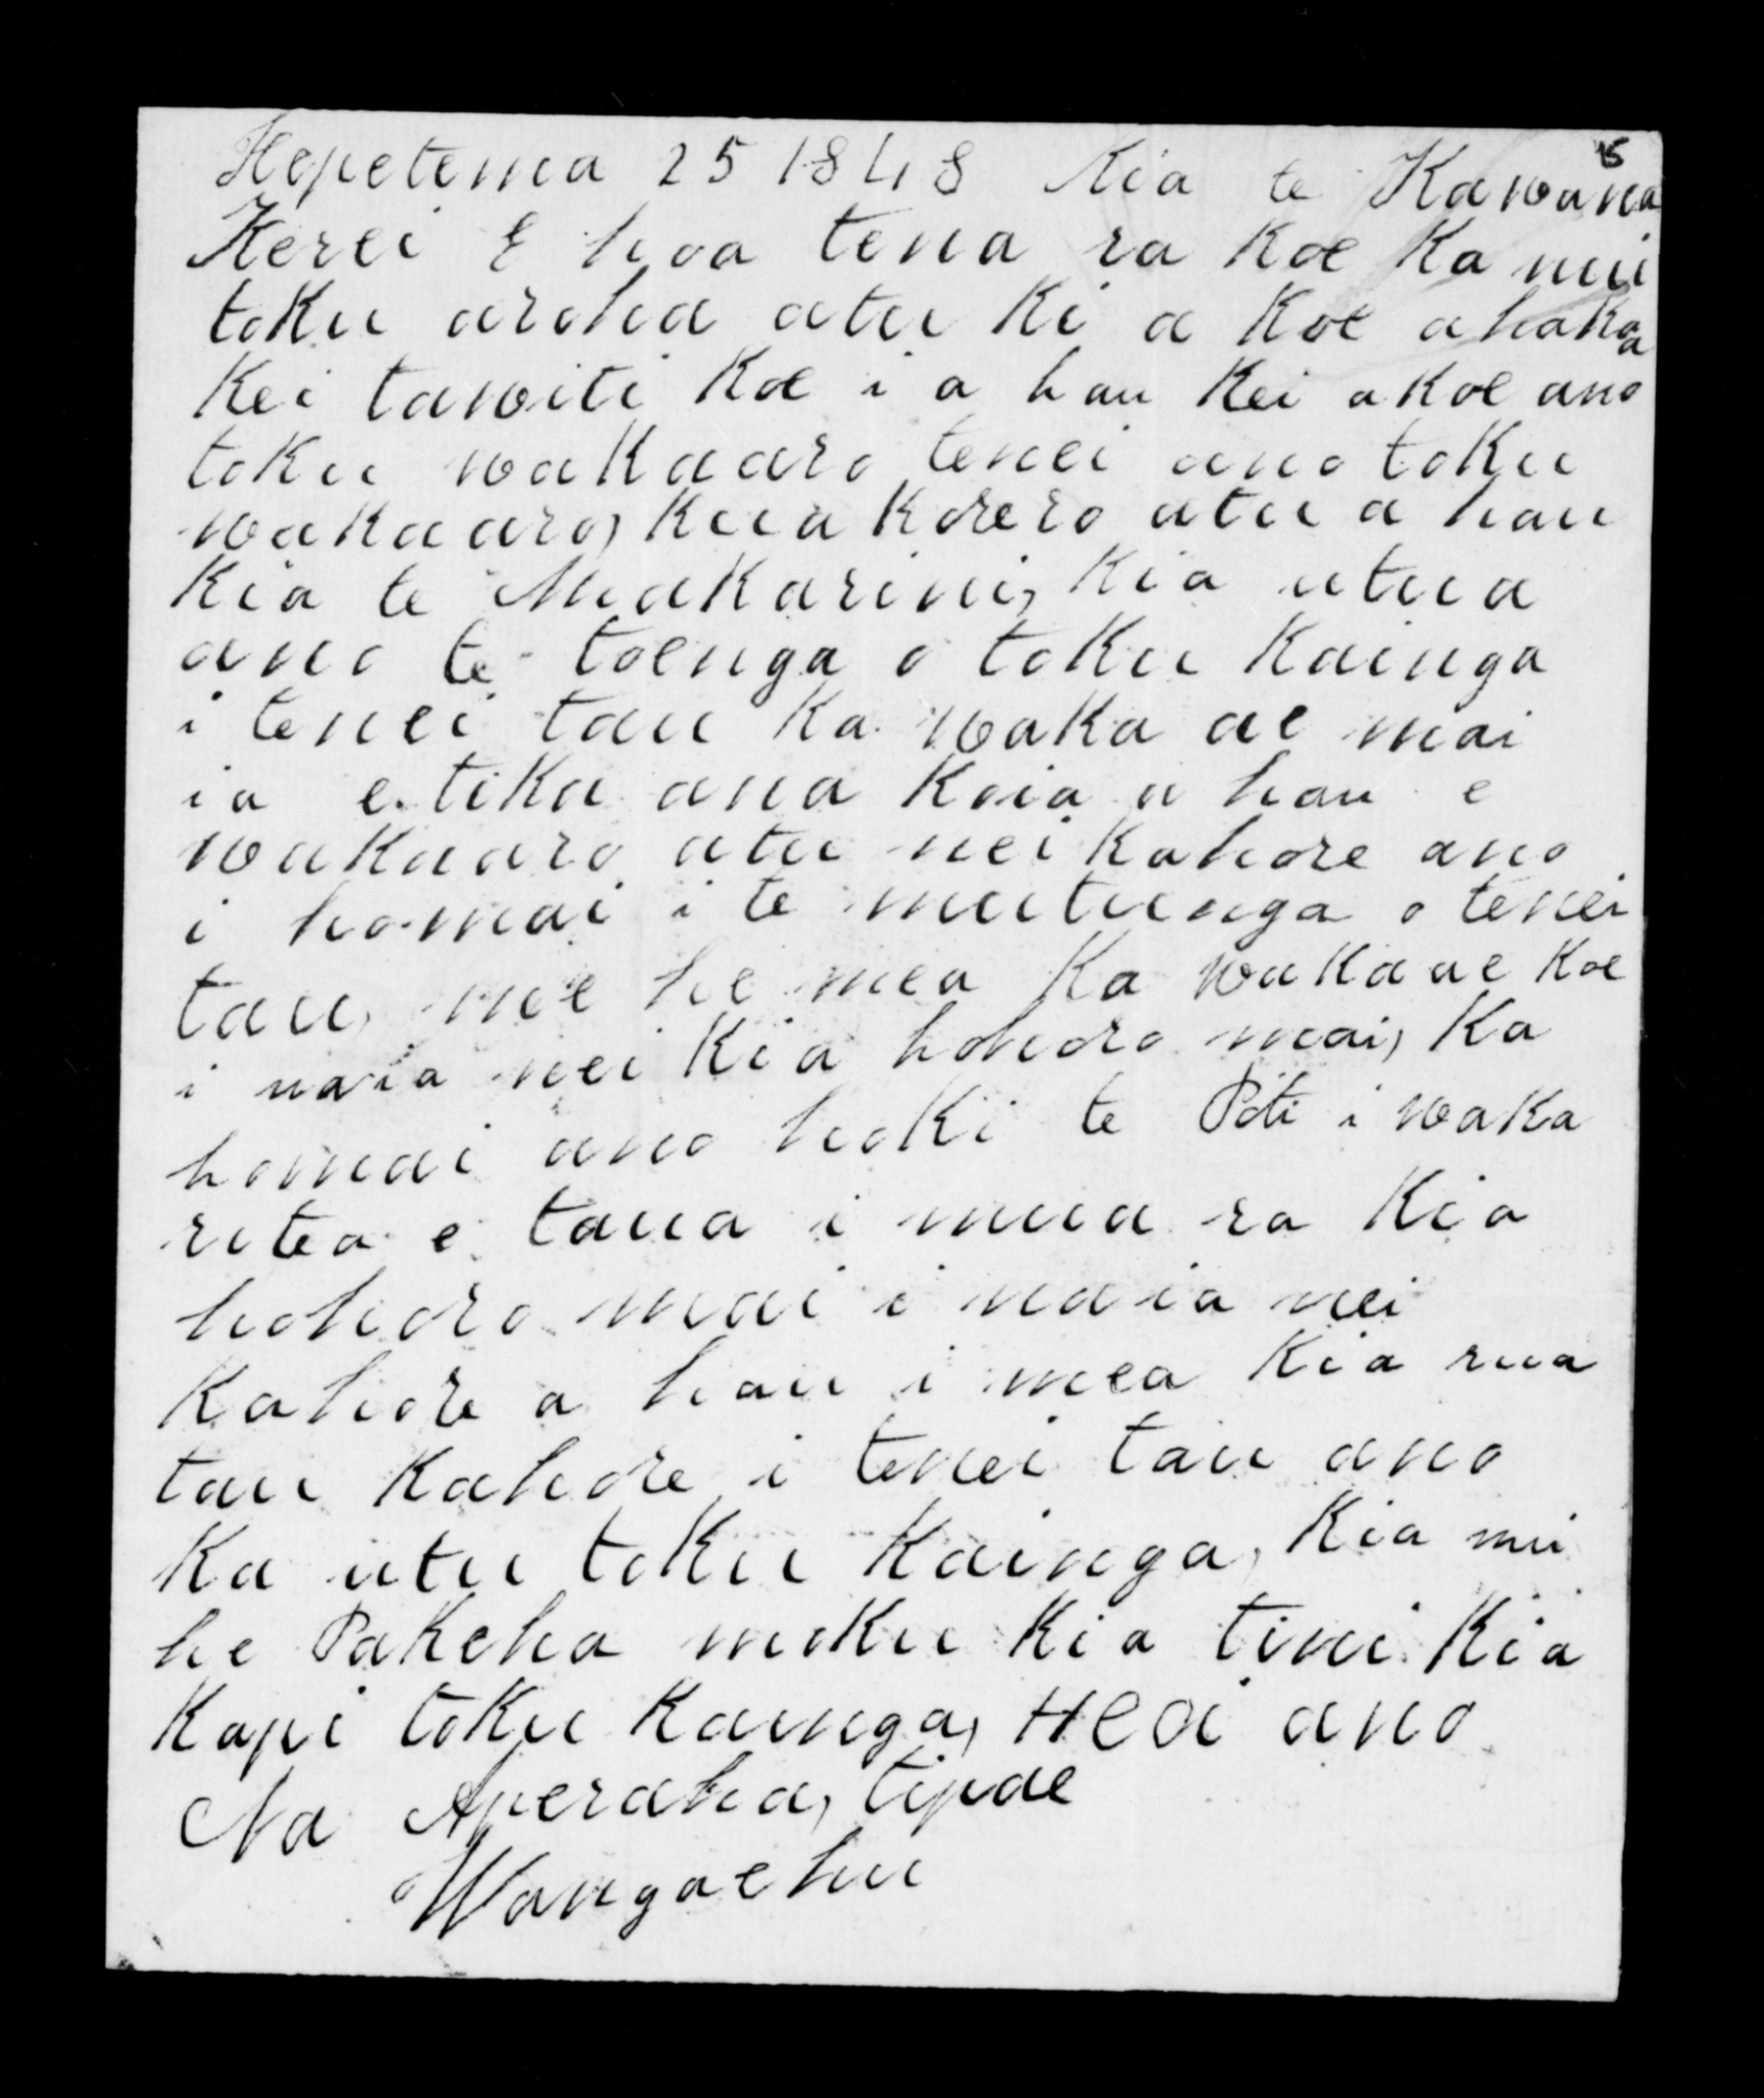 15
Hepetema 25 1848 Kia te Kawana
Kerei E hoa tena ra koe Ka nui
toku aroha atu ki a koe ahakoa
kei tawiti koe i a hau kei a koe ano
toku wakaaro tenei ano toku
wakaaro, kua korero atu a hau
kia te Makarini, kia utua
ano te toenga o toku kainga
i tenei tau ka waka ae mai
ia e tika ana koia a hau e
wakaaro atu nei kahore ano
i homai i te mutunga o tenei
tau, me he mea ka wakaae koe
i naia nei kia hohoro mai, ka
homai ano hoki te Poti i waka
ritea e taua i mua ra kia
hohoro mai i naia nei
kahore a hau i mea kia rua
tau kahore i tenei tau ano
ka utu toku kainga, kia nui
he Pakeha moku kia tini kia
kapi toku kainga, Heoi ano
Na Aperaha, tipae
Wangaehu